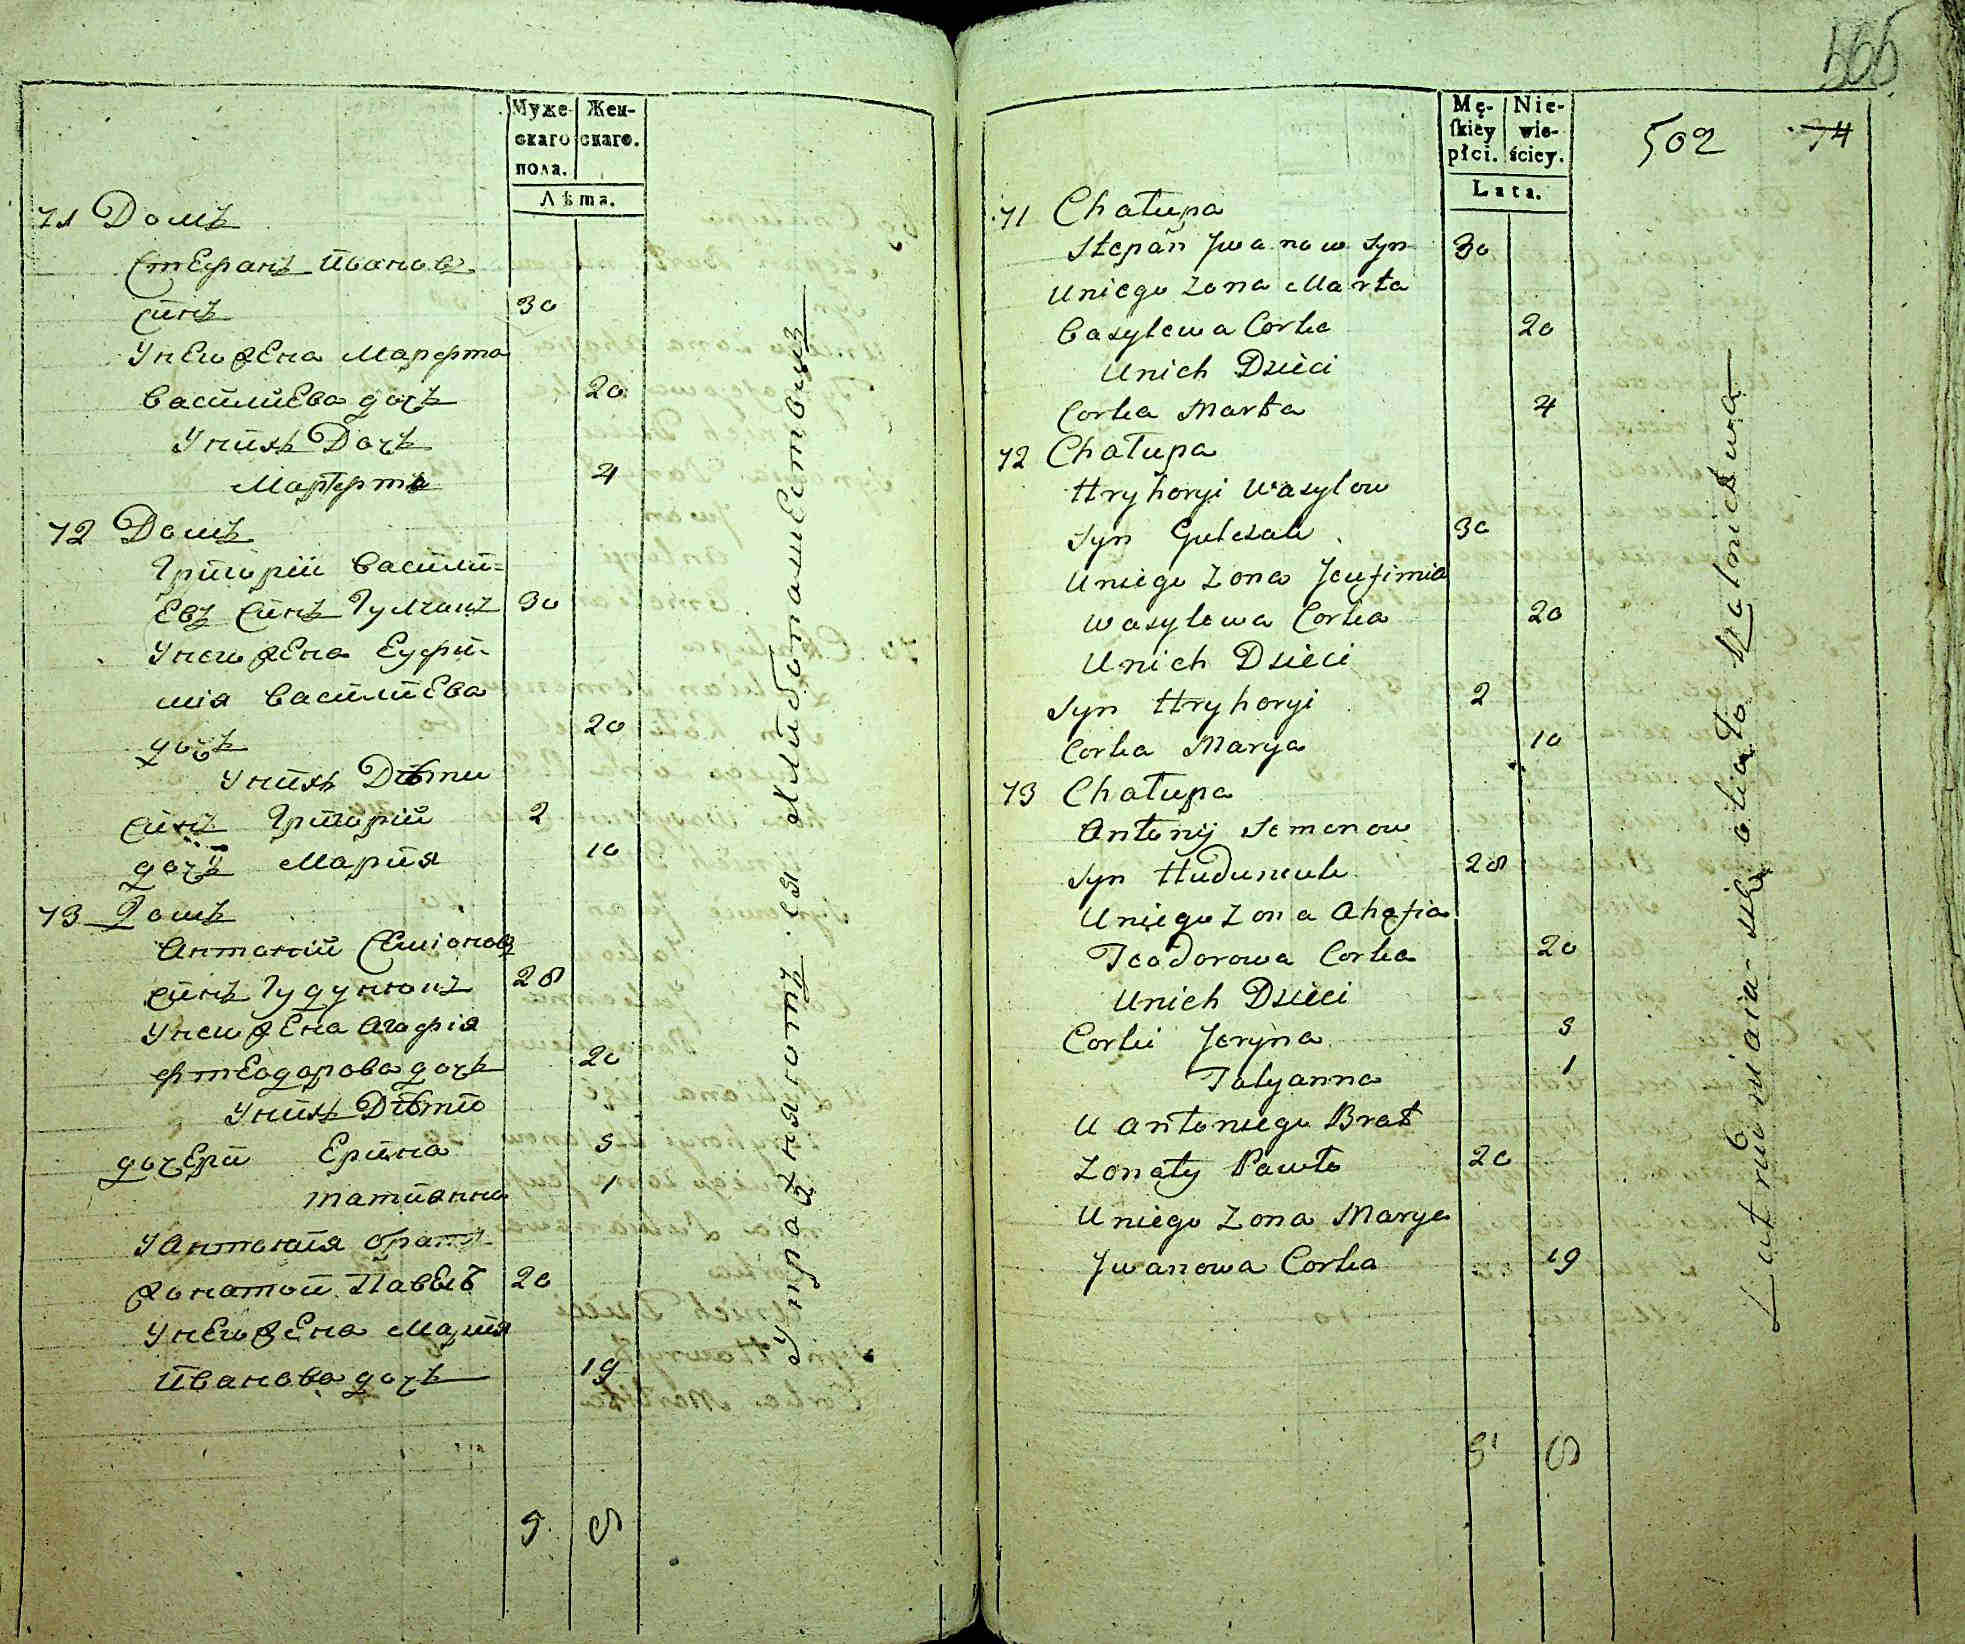 Муже-
скаго
пола.
Жен-
скаго.
Лѣта.
71 Домъ
Стефанъ Ивановъ
синъ 30
Унего жена Марфта
Василиева дочъ 20
Унихъ Дочъ
Марфта 4
72 Домъ
Григорій Васили=
евъ синъ Гулчакъ 30
Унего жена Еуфи-
мія Василиева
дочъ 20
Унихъ Дѣти
синъ Григорий 2
дочъ Мария 10
73 Домъ
Антоній Семіоновъ
синъ Гудунюкъ 28
Унего жена Агафія
Фтеодорова дочъ 20
Унихъ Дѣти
дочери Ерина 5
татиянна 1
У Антонія братъ
жонатой Павелъ 20
Унего жена Мария
Иванова дочъ 19
5 8
Упражняютъ ся Хлибопашествомъ
565
Mę-
ſkiey
płci.
Nie-
wie-
ściey.
Lata.
502 74
71 Chałupa
Stepan Jwanow Syn 30
Uniego Zona Marta
Wasylewa Corka 20
Unich Dzieci
Corka Marta 4
72 Chałupa
Hryhoryi Wasylow
Syn Gulczak 30
Uniego Zona Jeufimia
Wasylewa Corka 20
Unich Dzieci
Syn Hryhoryi 2
Corka Marya 10
73 Chałupa
Antonij Semenow
Syn Huduniuk 28
Uniego Zona Ahafia
Teodorowa Corka 20
Unich Dzieci
Corki Jeryna 5
Tatyanna 1
U Antoniego Brat
Zonaty Pawło 20
Uniego Zona Marya
Jwanowa Corka 19
5 8
Zatrudniaia się około Rolnictwa